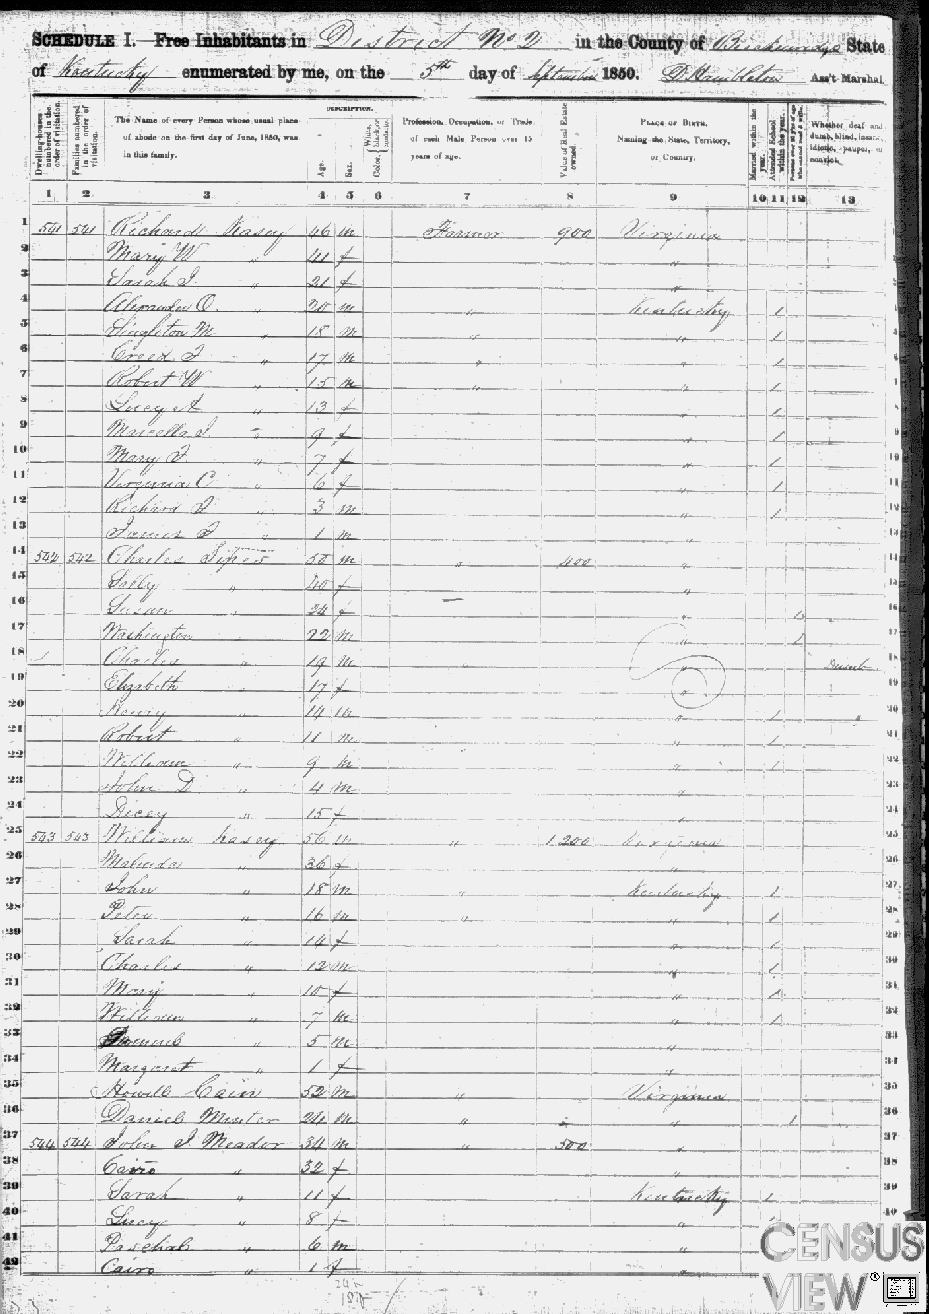 SCHEDULE I. Free Inhabitants in District No 2 in the County of Breckenridge State
of Kentucky enumerated by me, on the 5th day of September 1850. Ass't Marshal
DESCRIPTION.
Dwelling-houses numbered in the order of visitation.
Families numbered in the order of visitation.
The Name of every Person whose usual place of abode on the first day of June, 1850, was in this family.
Age.
Sex.
Color, White, black, or mulatto.
Profession, Occupation, or Trade of each Male Person over 15 years of age.
Value of Real Estate owned.
PLACE OF BIRTH, Naming the State, Territory, or Country.
Married within the year.
Attended School within the year.
Persons over 20 y'rs of age who cannot read & write.
Whether deaf and dumb, blind, insane, idiotic, pauper, or convict.
1 2 3 4 5 6 7 8 9 10 11 12 13
1 541 541 Richard Kasey 46 m Farmer 900 Virginia
2 Mary W " 41 f "
3 Sarah J. " 21 f "
4 Alexander O. " 20 m " Kentucky 1
5 Singleton M " 18 m " " 1
6 Creed T " 17 m " " 1
7 Robert W " 15 m " " 1
8 Lucy A " 13 f 1
9 Marcella J. " 9 f " 1
10 Mary F. " 7 f " 1
11 Virginia C " 6 f " 1
12 Richard J " 3 m " 1
13 James " 1 m "
14 542 542 Charles m " 400 "
15 Sally " 40 f "
16 Susan " 24 f " 1
17 Washington 22 m " 1
18 Charles " 19 m " "
19 Elizabeth " 17 f "
20 Henry " 14 m " 1
21 Robert " 11 m " 1
22 William " 9 m " 1
23 John D " 4 m "
24 Dicey " 15 f "
25 543 543 William Kasey 56 m " 1200 Virginia
26 Malinda " 36 f "
27 John " 18 m " Kentucky 1
28 Peter " 16 m " " 1
29 Sarah " 14 f " 1
30 Charles " 12 m " 1
31 Mary " 10 f " 1
32 William " 7 m " 1
33 " 5 m "
34 Margaret " 1 f "
35 Howell Cain 52 m " Virginia
36 Daniel Minter 24 m " " 1
37 544 544 John J. Meador 34 m " 500 "
38 Cairo " 32 f "
39 Sarah " 11 f Kentucky 1
40 Lucy " 8 f "
41 Paschal " 6 m "
42 Cairo " 1 f "
CENSUS
VIEW®